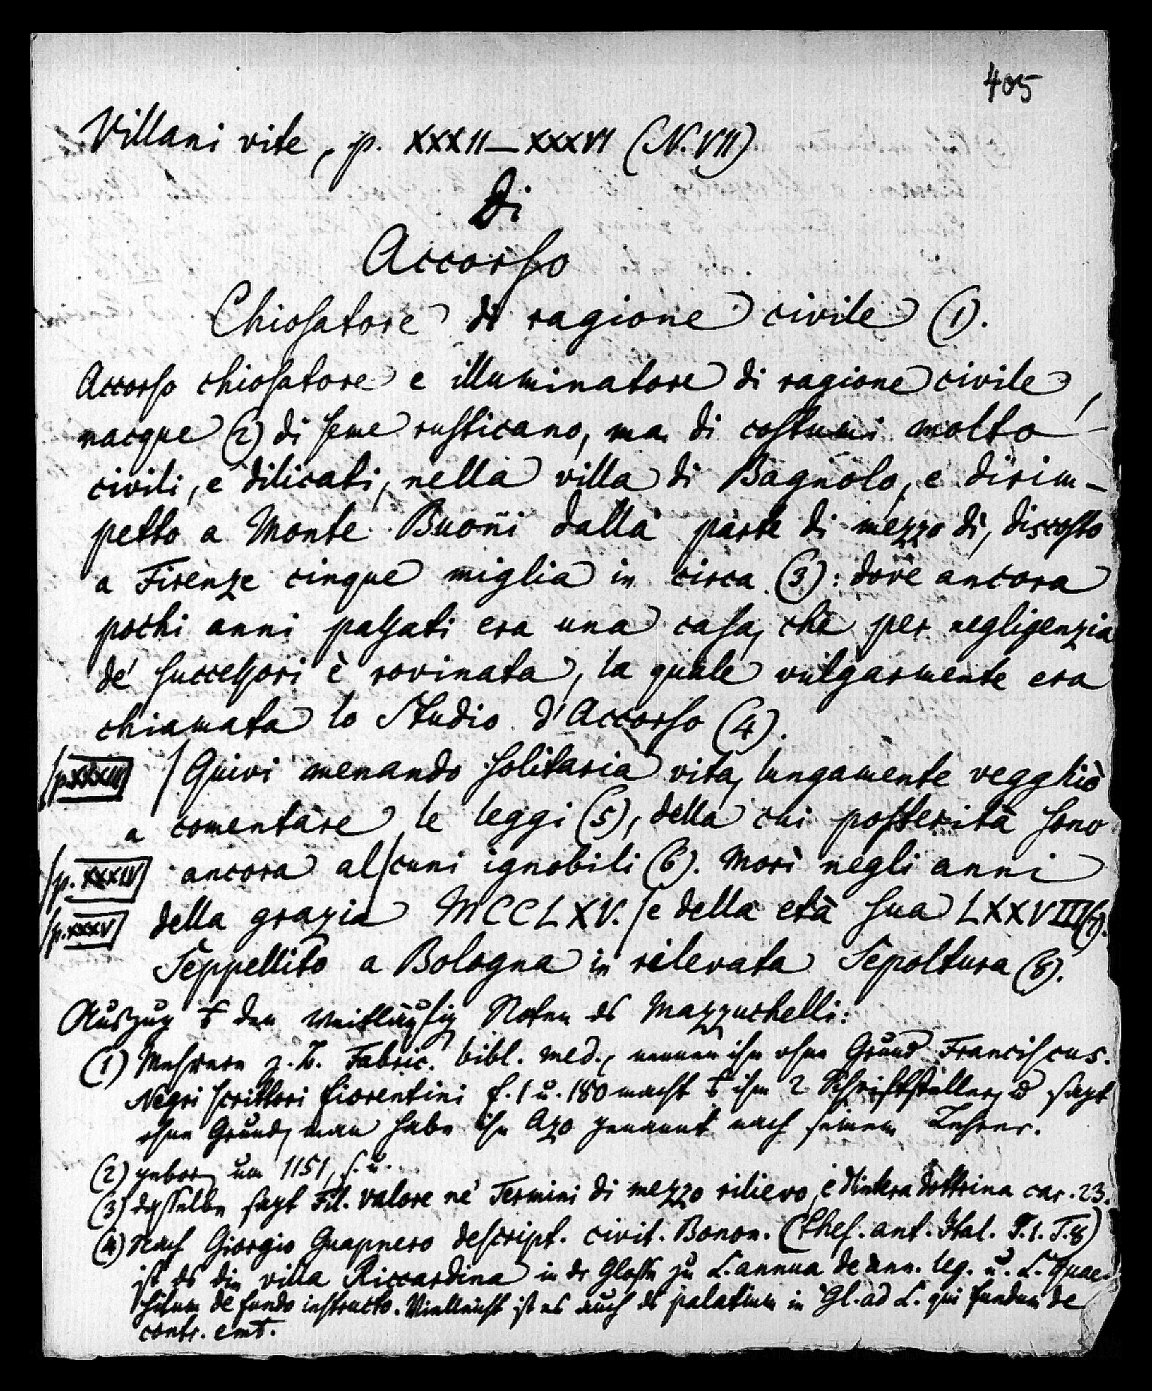 405
Villani vite, p. XXXII–XXXVI (N. VII)
Di
Accorso
Chiosatore di ragione civile (1).
Accorso chiosatore e illuminatore di ragione civile,
nacque (2) di seme rusticano, ma di costumi molto
civili, e dilicati, nella villa di Bagnolo, e dirim-
petto a Monte Buoni dalla parte di mezzo dì, discosto
a Firenze cinque miglia in circa (3): dove ancora
pochi anni passati era una casa, che per negligenzia
de' successori è rovinata, la quale vulgarmente era
chiamata lo Studio d'Accorso (4).
/p. XXXIII /Quivi menando solitaria vita, lungamente vegghiò
a comentare le leggi (5), della cui posterità sono
/p. XXXIV ancora al/cuni ignobili (6). Morì negli anni
/p. XXXV della grazia MCCLXV. /e della età sua LXXVIII (7).
Seppellito a Bologna in rilevata Sepoltura (8).
Auszug den weitläufig Noten des Mazzuchelli:
(1) Mehrere z. B. Fabric. bibl. med., nennen ihn ohne Grund Franciscus.
Negri scrittori fiorentini f. 1 u. 180 macht ihm 2 Schriftsteller, sagt
ohne Grund, man habe ihn Azo genannt nach seinem Lehrer.
(2) gebor. um 1151, s. u.
(3) dasselbe sagt Fil. Valore ne' Termini di mezzo rilievo, e dottrina car. 23.
(4) Nach Giorgio descript. civit. Bonon. (Thes. ant. Ital. T. 8)
ist es die villa Riccardina in der Glosse zu L. annua de ann. leg. u. L. Quae-
situm de fundo instructo. Vielleicht ist es auch das palatium in Gl. ad L. qui fundum de
contr. emt.